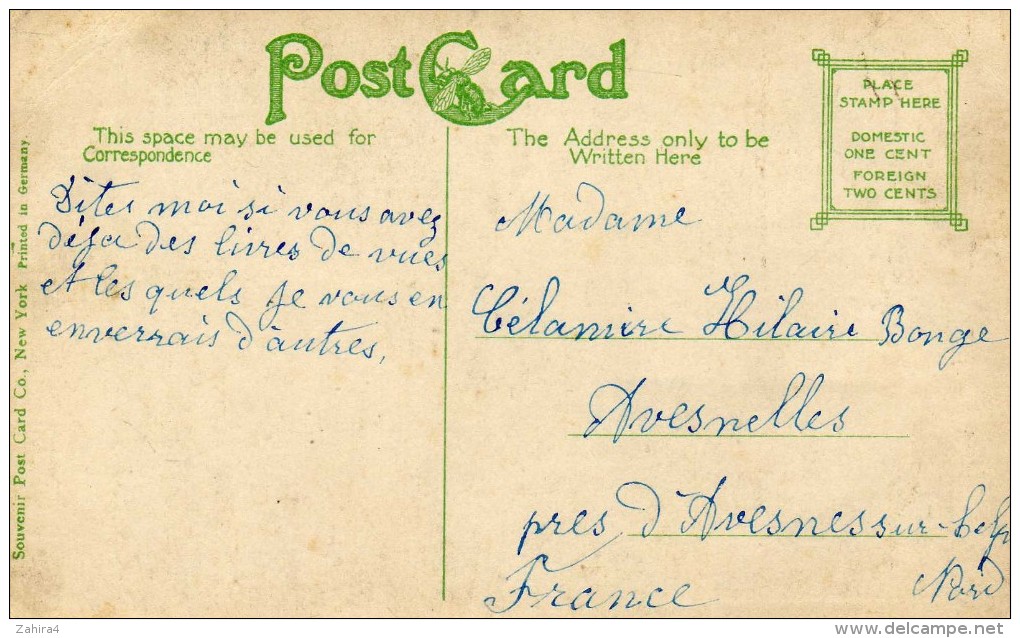 Post Card
This space may be used for
Correspondence
The Address only to be
Written Here
PLACE
STAMP HERE
DOMESTIC
ONE CENT
FOREIGN
TWO CENTS
Souvenir Post Card Co., New York Printed in Germany.
Dites moi si vous avez
déja des livres de vues
et les quels je vous en
enverrais d'autres,
Madame
Célamire Hilaire Bonge
Avesnelles
pres d'Avesnes sur-helpe
France Nord
Zahira4
www.delcampe.net